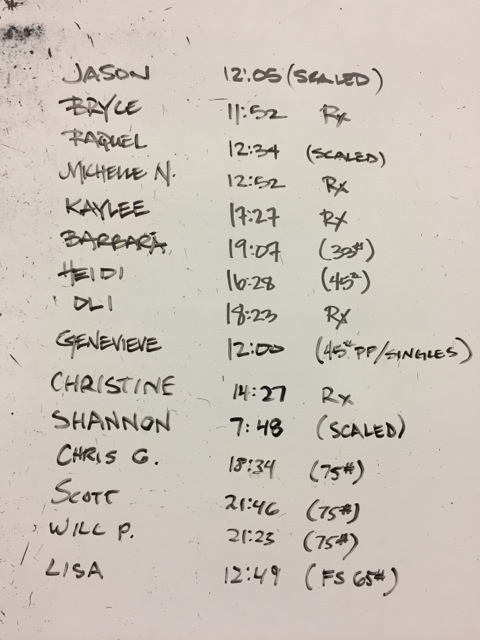 JASON 12:05 (SCALED)
BRYCE 11:52 Rx
RAQUEL 12:34 (SCALED)
MICHELLE N. 12:52 Rx
KAYLEE 17:27 Rx
BARBARA 19:07 (33#)
HEIDI 16:28 (45#)
DLI 18:23 Rx
GENEVIEVE 12:00 (45# PP/SINGLES)
CHRISTINE 14:27 Rx
SHANNON 7:48 (SCALED)
CHRIS G. 18:34 (75#)
SCOTT 21:46 (75#)
WILL P. 21:23 (75#)
LISA 12:49 (FS 65#)